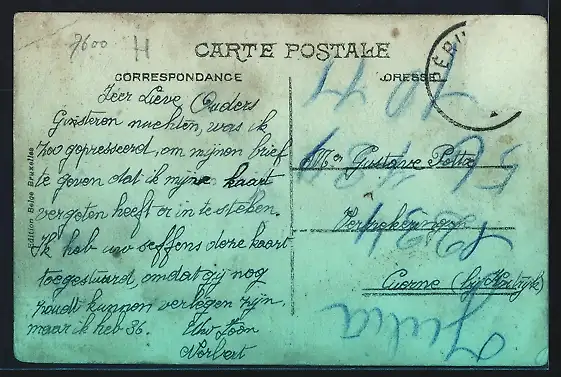 7600 H
CARTE POSTALE
CORRESPONDANCE ADRESSE
PÉRU
Zeer Lieve Ouders
Ginsteren nuchten, was ik
zoo gepresseerd, om mijnen brief
te geven dat ik mijne kaart
vergeten heeft er in te steken.
Ik heb uw seffens deze kaart
toegestuurd, omdat gij nog
zoudt kunnen verlegen zijn,
maar ik heb 36. Uw Zoon
Norbert
Mer Gustave
Cuerne (bij Kortrijk)
Edition Belge Bruxelles